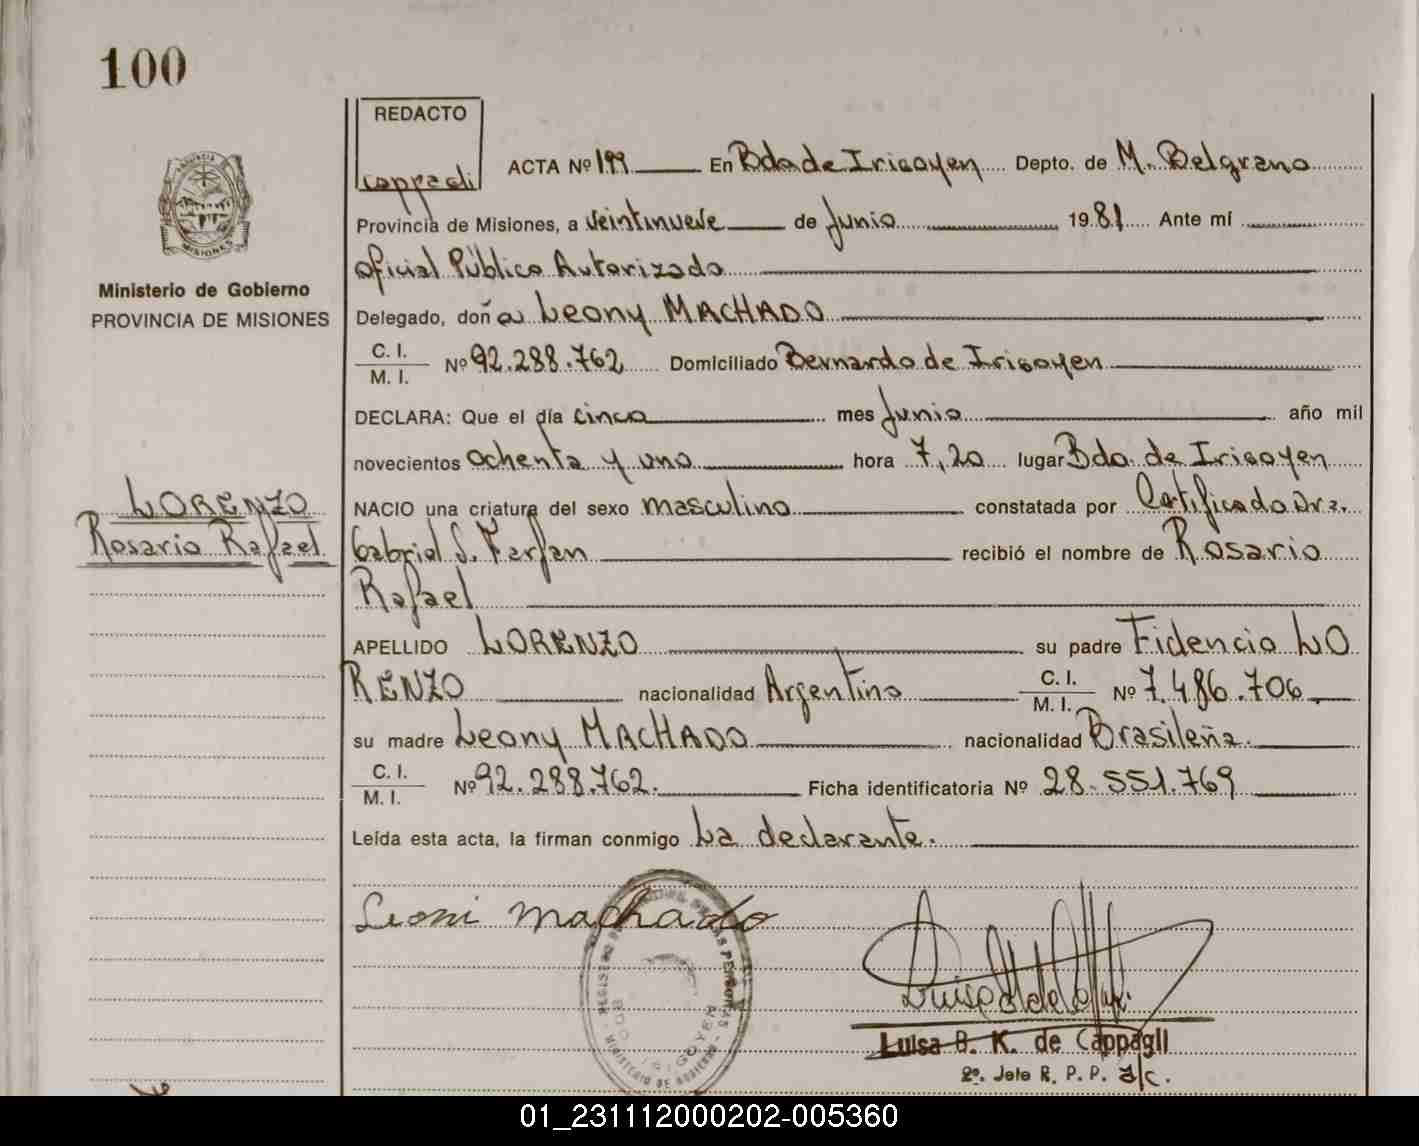 100
REDACTO
Cappagli
ACTA Nº 199 En Bdo de Irigoyen Depto. de M. Belgrano
Provincia de Misiones, a veintinueve de Junio 1981 Ante mí
Oficial Público Autorizado
Ministerio de Gobierno
PROVINCIA DE MISIONES
Delegado, doña Leony MACHADO
C. I.
M. I. Nº 92.288.762 Domiciliado Bernardo de Irigoyen
DECLARA: Que el día cinco mes Junio año mil
novecientos ochenta y uno hora 7,20 lugar Bdo. de Irigoyen
LORENZO
Rosario Rafael
NACIO una criatura del sexo masculino constatada por Certificado Dra.
Gabriel S. Farfan recibió el nombre de Rosario
Rafael
APELLIDO LORENZO su padre Fidencio LO
RENZO nacionalidad Argentino C. I. M. I. Nº 7.486.706
su madre Leony MACHADO nacionalidad Brasileña.
C. I.
M. I. Nº 92.288.762. Ficha identificatoria Nº 28.551.769
Leída esta acta, la firman conmigo La declarante.
Leoni Machado
Luisa B. K. de Cappagli
2º. Jefe R. P. P. I/C.
01_231112000202-005360